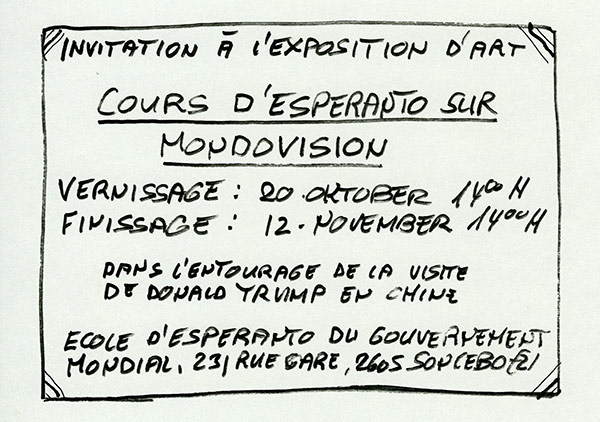 INVITATION À L'EXPOSITION D'ART
COURS D'ESPERANTO SUR
MONDOVISION
VERNISSAGE : 20 OKTOBER 14⁰⁰ H
FINISSAGE : 12. NOVEMBER 14⁰⁰ H
DANS L'ENTOURAGE DE LA VISITE
DE DONALD TRUMP EN CHINE
ECOLE D'ESPERANTO DU GOUVERNEMENT
MONDIAL, 23, RUE GARE, 2605 SONCEBOZ